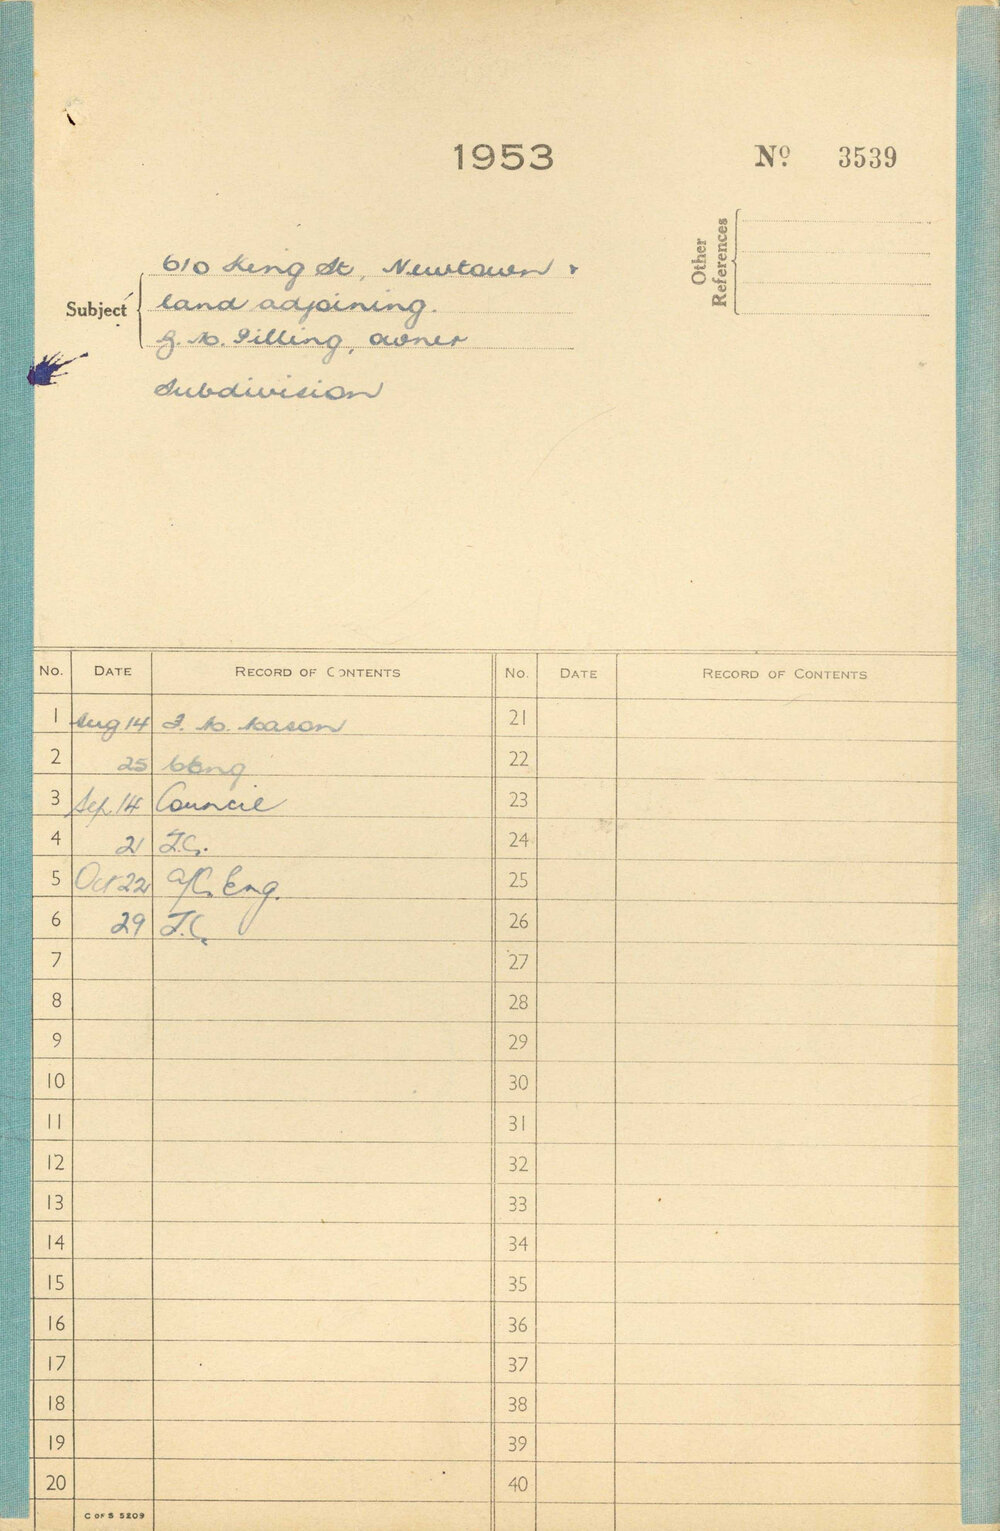 1953
Nº 3539
Other
References
Subject
610 King St, Newtown &
land adjoining.
Pilling, owner
Subdivision
No. DATE RECORD OF CONTENTS No. DATE RECORD OF CONTENTS
1 Aug 14 Mason 21
2 25 22
3 Sep. 14 Council 23
4 21 T.C. 24
5 Oct 22 A/C. Eng. 25
6 29 T.C. 26
7 27
8 28
9 29
10 30
11 31
12 32
13 33
14 34
15 35
16 36
17 37
18 38
19 39
20 40
C OF S 5209